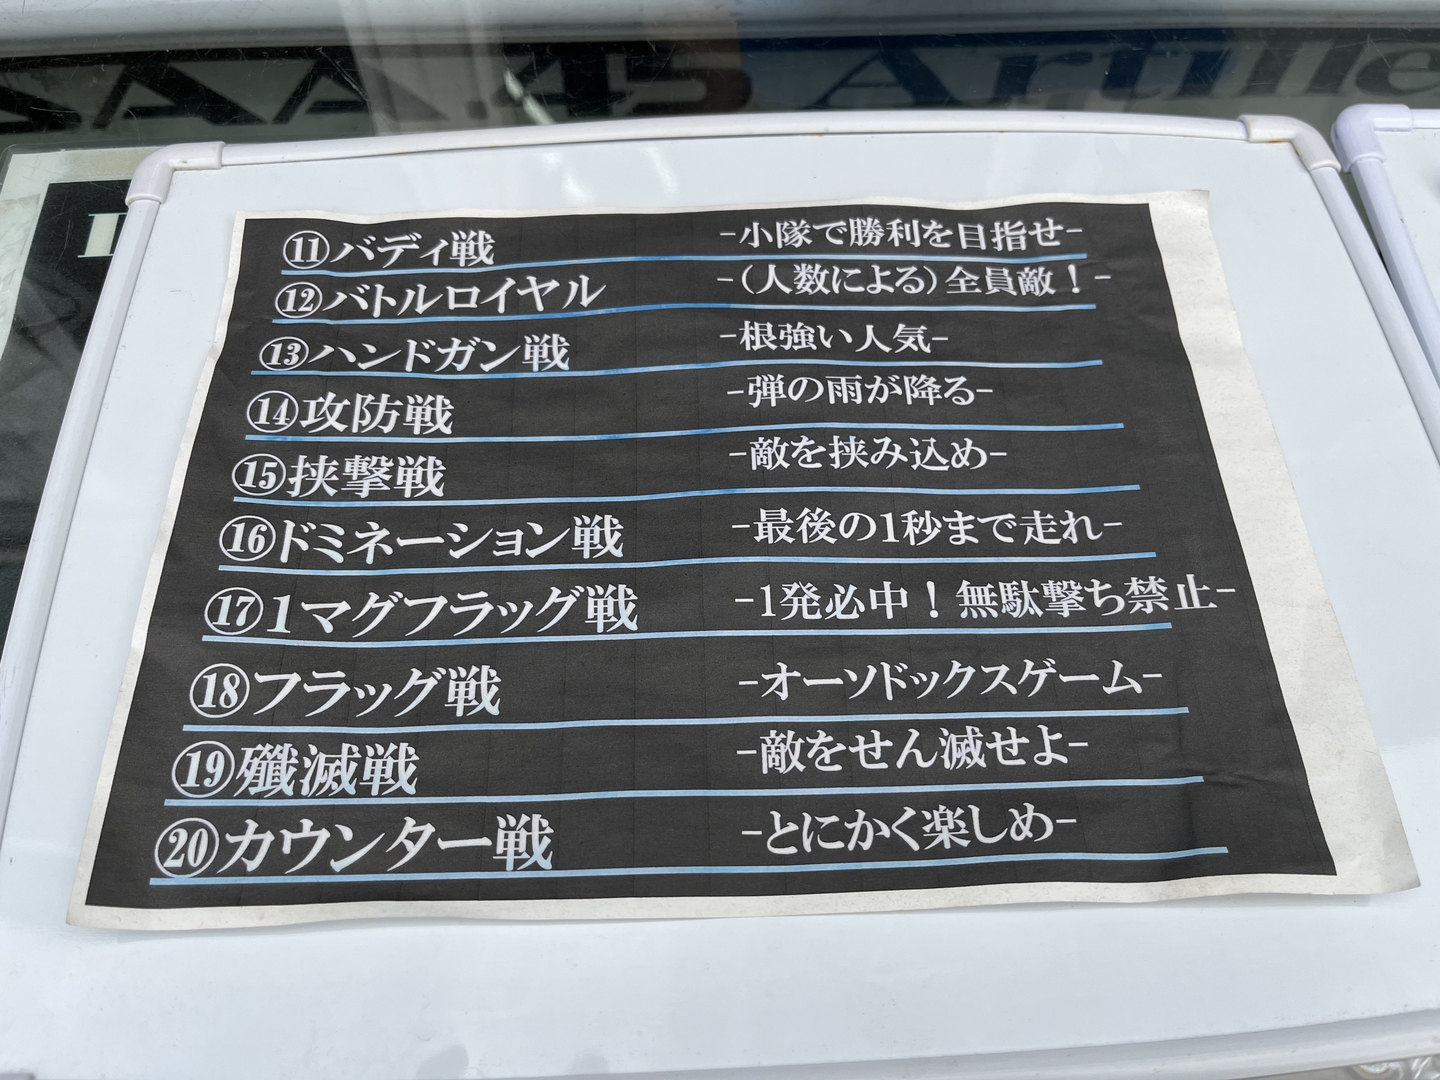 SAA.45 Artille
⑪バディ戦 -小隊で勝利を目指せ-
⑫バトルロイヤル -(人数による)全員敵！-
⑬ハンドガン戦 -根強い人気-
⑭攻防戦 -弾の雨が降る-
⑮挟撃戦 -敵を挟み込め-
⑯ドミネーション戦 -最後の1秒まで走れ-
⑰1マグフラッグ戦 -1発必中！無駄撃ち禁止-
⑱フラッグ戦 -オーソドックスゲーム-
⑲殲滅戦 -敵をせん滅せよ-
⑳カウンター戦 -とにかく楽しめ-